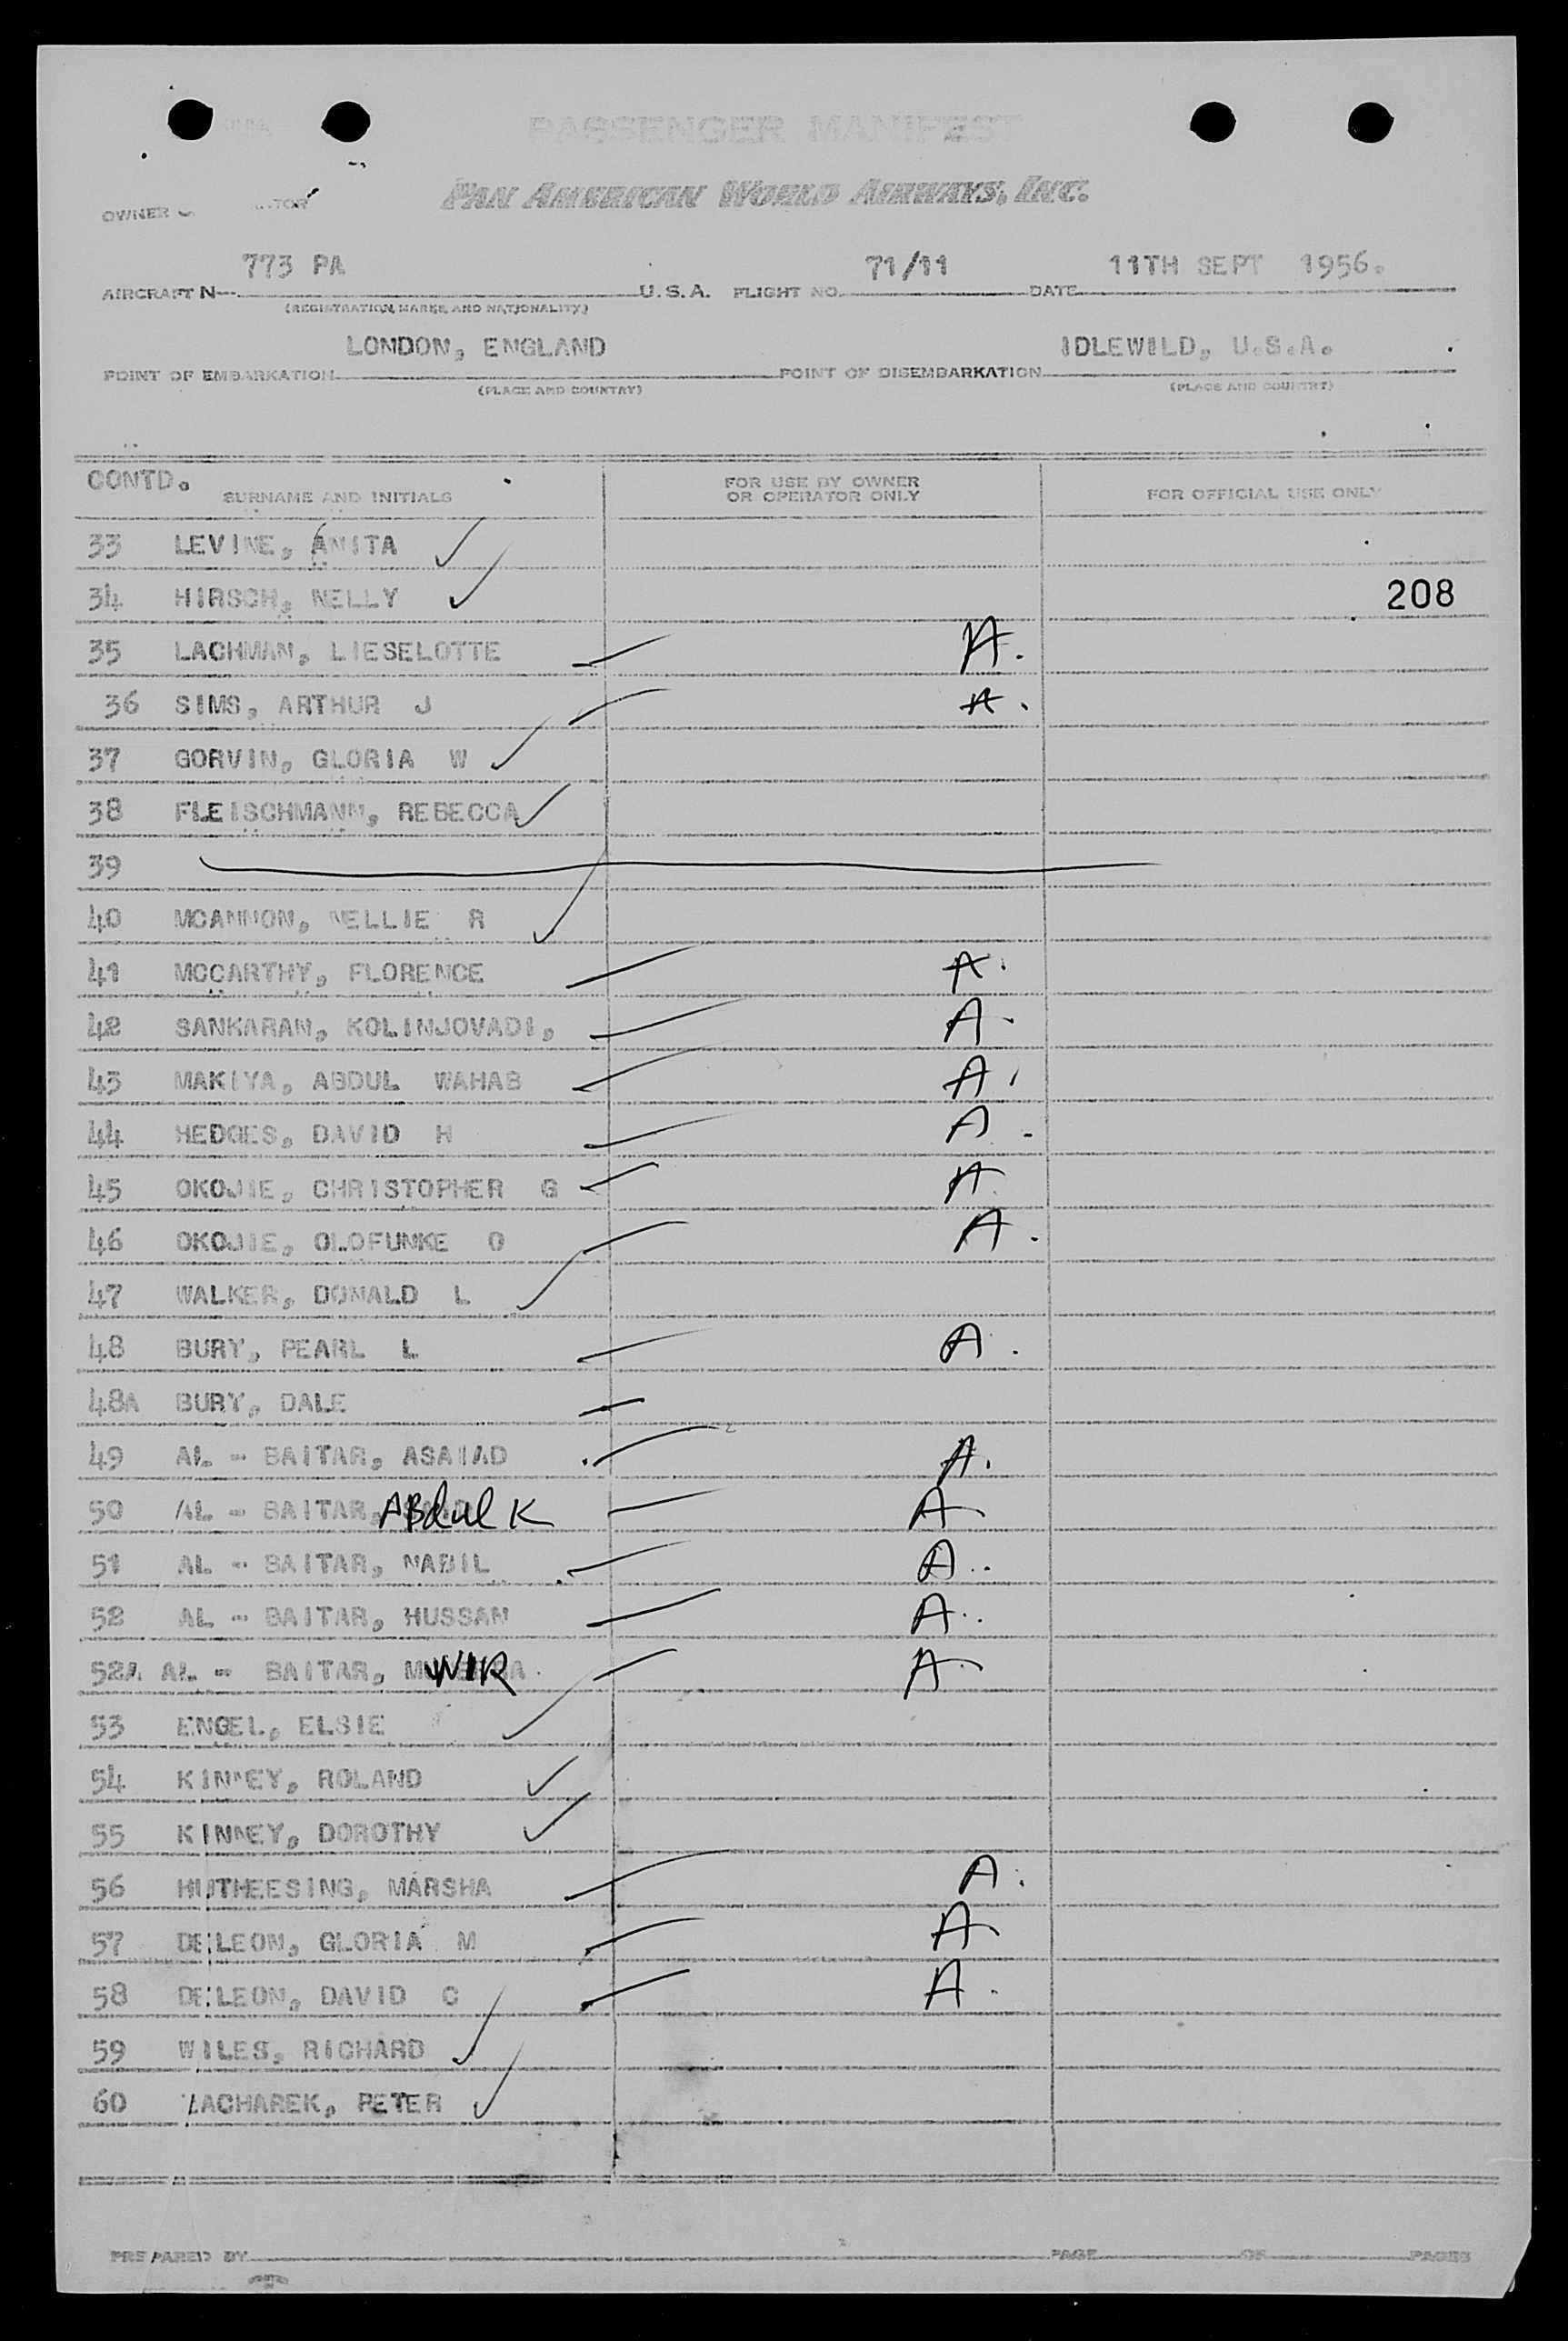 PASSENGER MANIFEST
PAN AMERICAN WORLD AIRWAYS, INC.
OWNER
773 PA 71/11 11TH SEPT 1956.
AIRCRAFT N- U.S.A. FLIGHT NO. DATE
(REGISTRATION, MARKS, AND NATIONALITY)
LONDON, ENGLAND IDLEWILD, U.S.A.
POINT OF EMBARKATION POINT OF DISEMBARKATION
(PLACE AND COUNTRY) (PLACE AND COUNTRY)
CONTD.
SURNAME AND INITIALS FOR USE BY OWNER OR OPERATOR ONLY FOR OFFICIAL USE ONLY
33 LEVINE, ANITA
34 HIRSCH, NELLY 208
35 LACHMAN, LIESELOTTE A.
36 SIMS, ARTHUR J A.
37 GORVIN, GLORIA W
38 FLEISCHMANN, REBECCA
39
40 MCANNON, NELLIE R
41 MCCARTHY, FLORENCE A.
42 SANKARAN, KOLINJOVADI, A.
43 MAKIYA, ABDUL WAHAB A.
44 HEDGES, DAVID H A.
45 OKOJIE, CHRISTOPHER G A.
46 OKOJIE, OLOFUNKE O A.
47 WALKER, DONALD L
48 BURY, PEARL L A.
48A BURY, DALE
49 AL - BAITAR, ASAIAD A.
50 AL - BAITAR, ABdul K A
51 AL - BAITAR, NABIL A..
52 AL - BAITAR, HUSSAM A..
52A AL - BAITAR, A.
53 ENGEL, ELSIE
54 KINNEY, ROLAND
55 KINNEY, DOROTHY
56 HUTHEESING, MARSHA A.
57 DELEON, GLORIA M A
58 DELEON, DAVID C A.
59 WILES, RICHARD
60 ZACHAREK, PETER
PREPARED BY PAGE OF PAGES